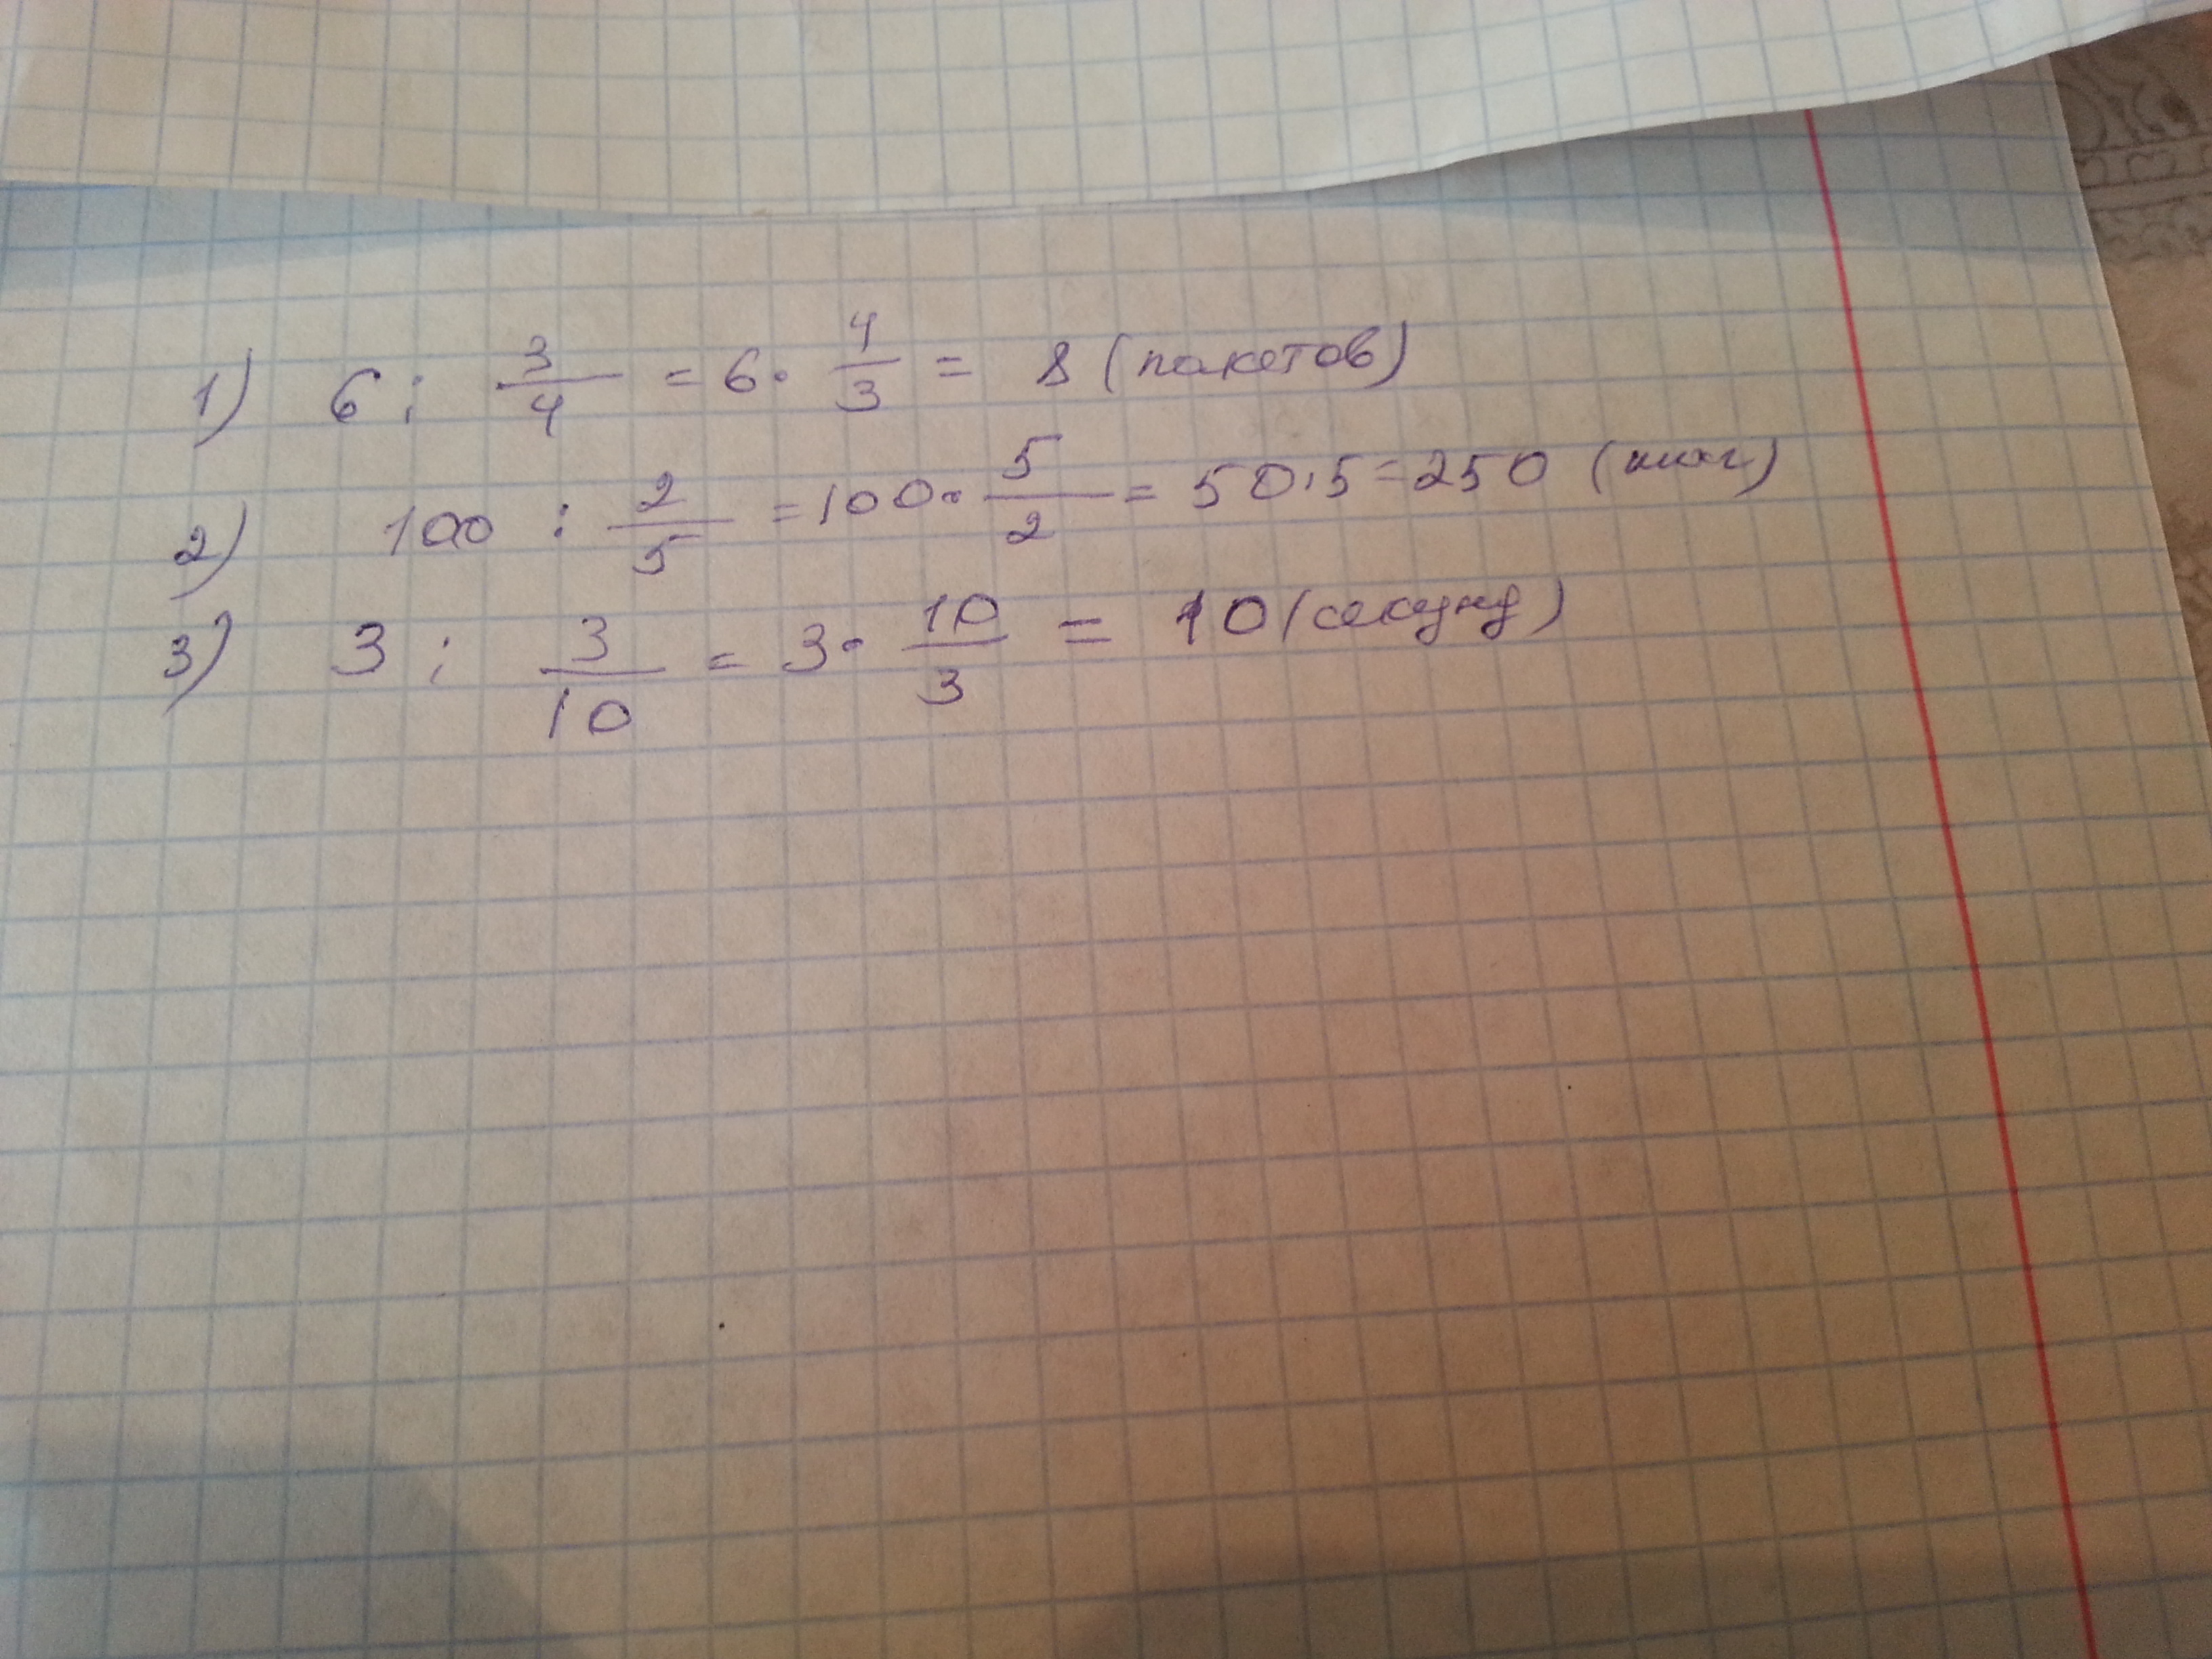 1) 6 : 3/4 = 6 · 4/3 = 8 (пакетов)
2) 100 : 2/5 = 100 · 5/2 = 50·5=250 (книг)
3) 3 : 3/10 = 3 · 10/3 = 10 (секунд)